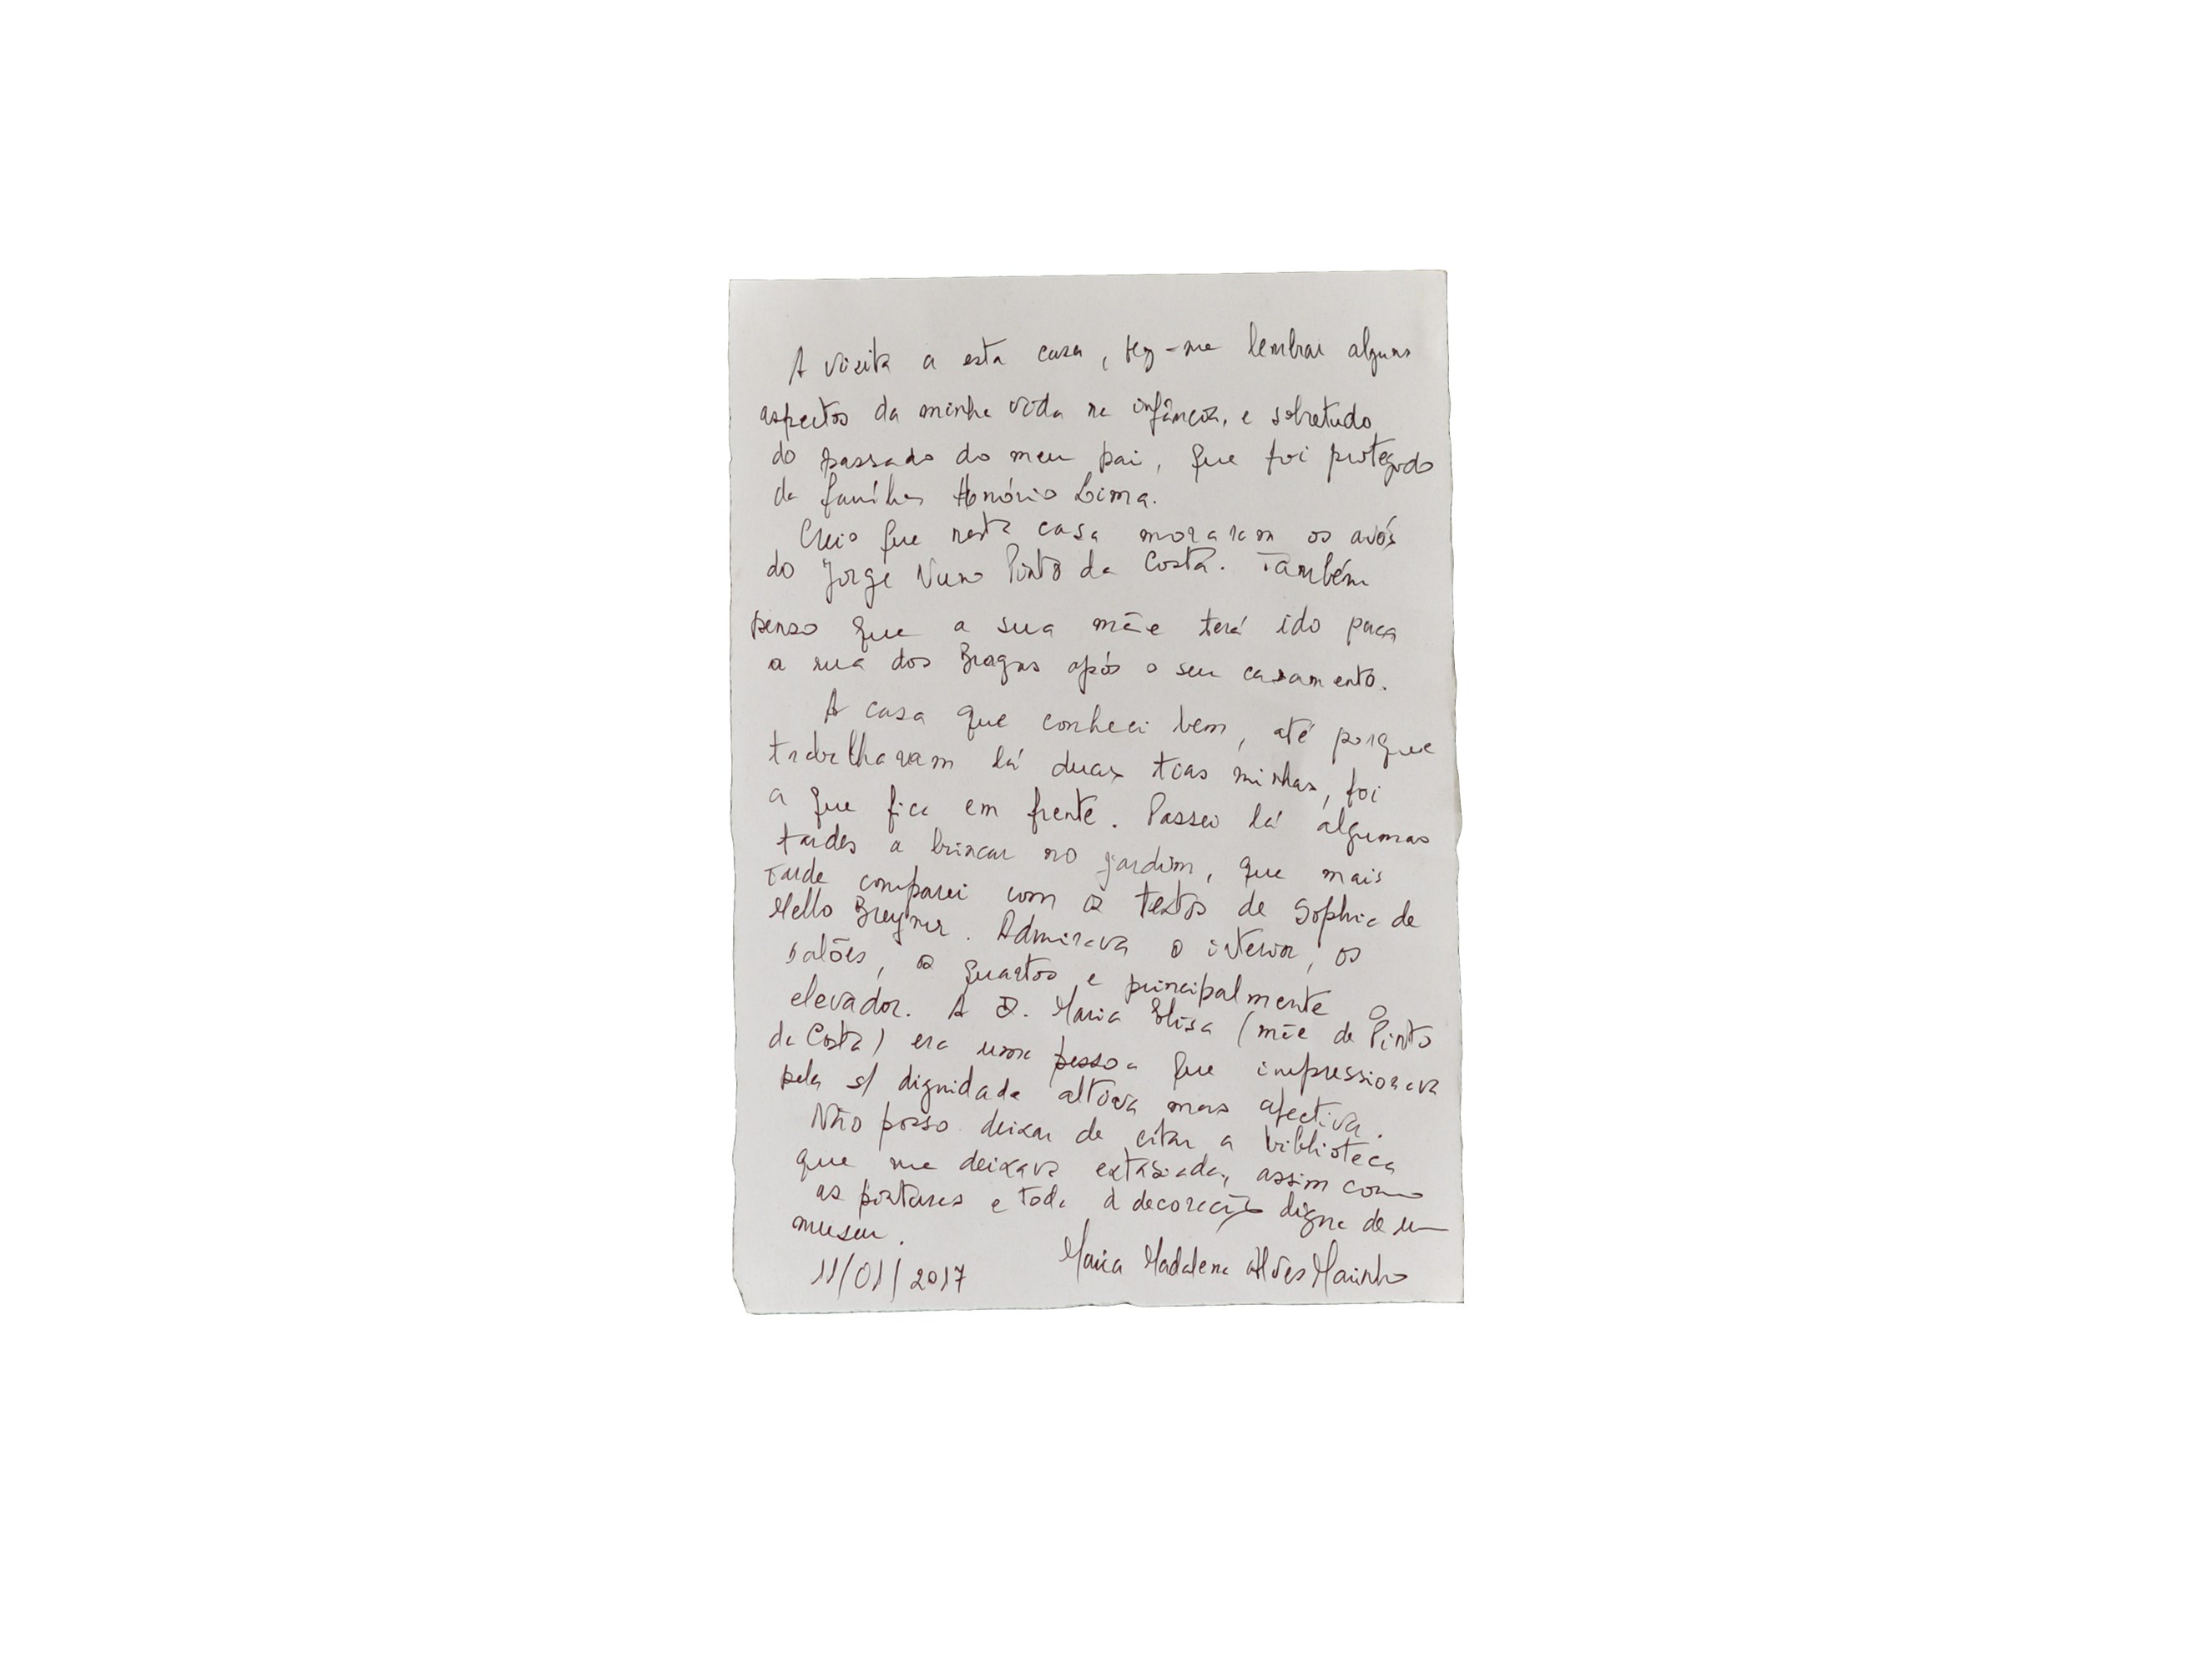 A visita a esta casa, fez-me lembrar alguns
aspectos da minha vida na infância, e sobretudo
do passado do meu pai, que foi protegido
da família Honório Lima.
Creio que nesta casa moraram os avós
do Jorge Nuno Pinto da Costa. Também
penso que a sua mãe terá ido para
a rua dos Bragas após o seu casamento.
A casa que conheci bem, até porque
trabalhavam lá duas tias minhas, foi
a que fica em frente. Passei lá algumas
tardes a brincar no jardim, que mais
tarde comparei com os textos de Sophia de
Mello Breyner. Admirava o interior, os
salões, os quartos e principalmente o
elevador. A D. Maria Elisa (mãe de Pinto
da Costa) era uma pessoa que impressionava
pela s/ dignidade altiva mas afectiva.
Não posso deixar de citar a biblioteca
que me deixava extasiada, assim como
as pinturas e toda a decoração digna de um
museu.
11/01/2017 Maria Madalena Alves Marinho